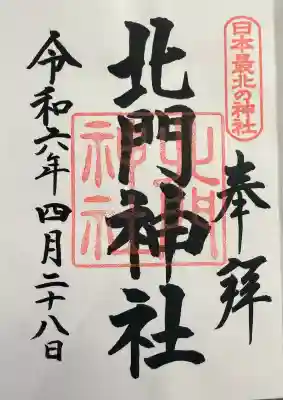 日本最北の神社
奉拝
北門神社
北門
神社
令和六年四月二十八日